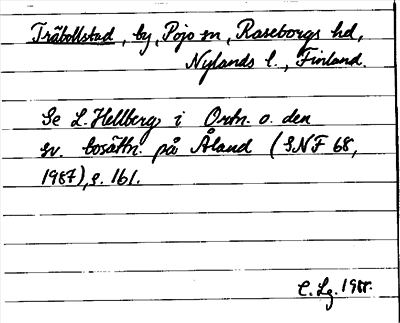 Träbollstad, by, Pojo sn, Raseborgs hd,
Nylands l., Finland.
Se L. Hellberg i Ortn. o. den
sv. bosättn. på Åland (SNF 68,
1987), s. 161.
C. Lg. 1988.